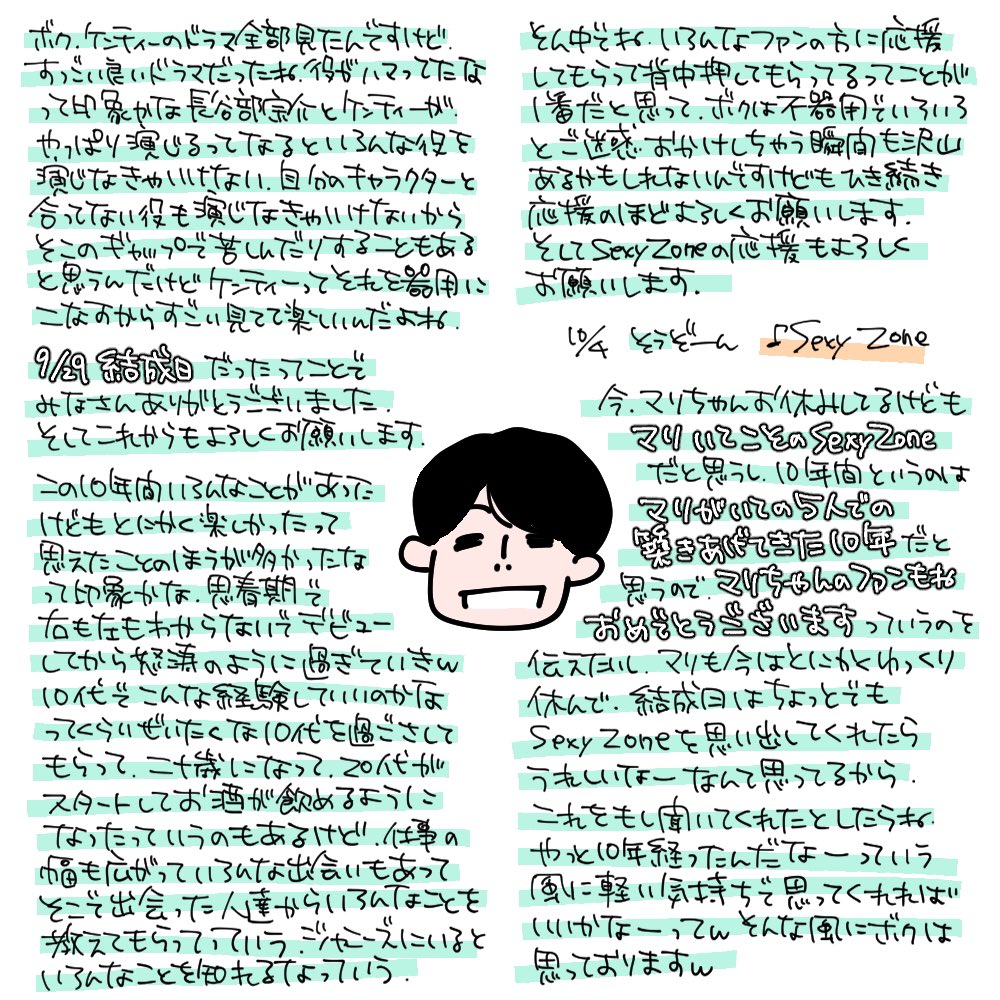 ボク、ケンティーのドラマ全部見たんですけど、
すっごい良いドラマだったね、役がハマってたな
って印象かな長谷部宗介とケンティーが、
やっぱり演じるってなるといろんな役を
演じなきゃいけない、自分のキャラクターと
合ってない役も演じなきゃいけないから
そこのギャップで苦しんだりすることもある
と思うんだけどケンティーってそれを器用に
こなすからすごい見てて楽しいんだよね、
9/29 結成日 だったってことで
みなさんありがとうございました、
そしてこれからもよろしくお願いします、
この10年間いろんなことがあった
けどもとにかく楽しかったって
思えたことのほうが多かったな
って印象かな、思春期で
右も左もわからないでデビュー
してから怒涛のように過ぎていきw
10代でこんな経験していいのかな
ってくらいぜいたくな10代を過ごさして
もらって、二十歳になって、20代が
スタートしてお酒が飲めるように
なったっていうのもあるけど、仕事の
幅も広がっていろんな出会いもあって
そこで出会った人達からいろんなことを
教えてもらってっていう、ジャニーズにいると
いろんなことを知れるなっていう、
そん中でね、いろんなファンの方に応援
してもらって背中押してもらってるってことが
1番だと思って、ボクは不器用でいろいろ
とご迷惑おかけしちゃう瞬間も沢山
あるかもしれないんですけどもひき続き
応援のほどよろしくお願いします、
そしてSexy Zoneの応援もよろしく
お願いします、
10/4 そうぞーん ♪Sexy Zone
今、マリちゃんお休みしてるけども
マリいてこそのSexy Zone
だと思うし、10年間というのは
マリがいての5人での
築きあげてきた10年だと
思うので、マリちゃんのファンもね
おめでとうございますっていうのを
伝えたいし、マリも今はとにかくゆっくり
休んで、結成日はちょっとでも
Sexy Zoneを思い出してくれたら
うれしいなーなんて思ってるから、
これをもし聞いてくれたとしたらね、
やっと10年経ったんだなーっていう
風に軽い気持ちで思ってくれれば
いいかなーってw そんな風にボクは
思っておりますw